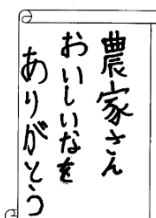 農家さん
おいしいなを
ありがとう